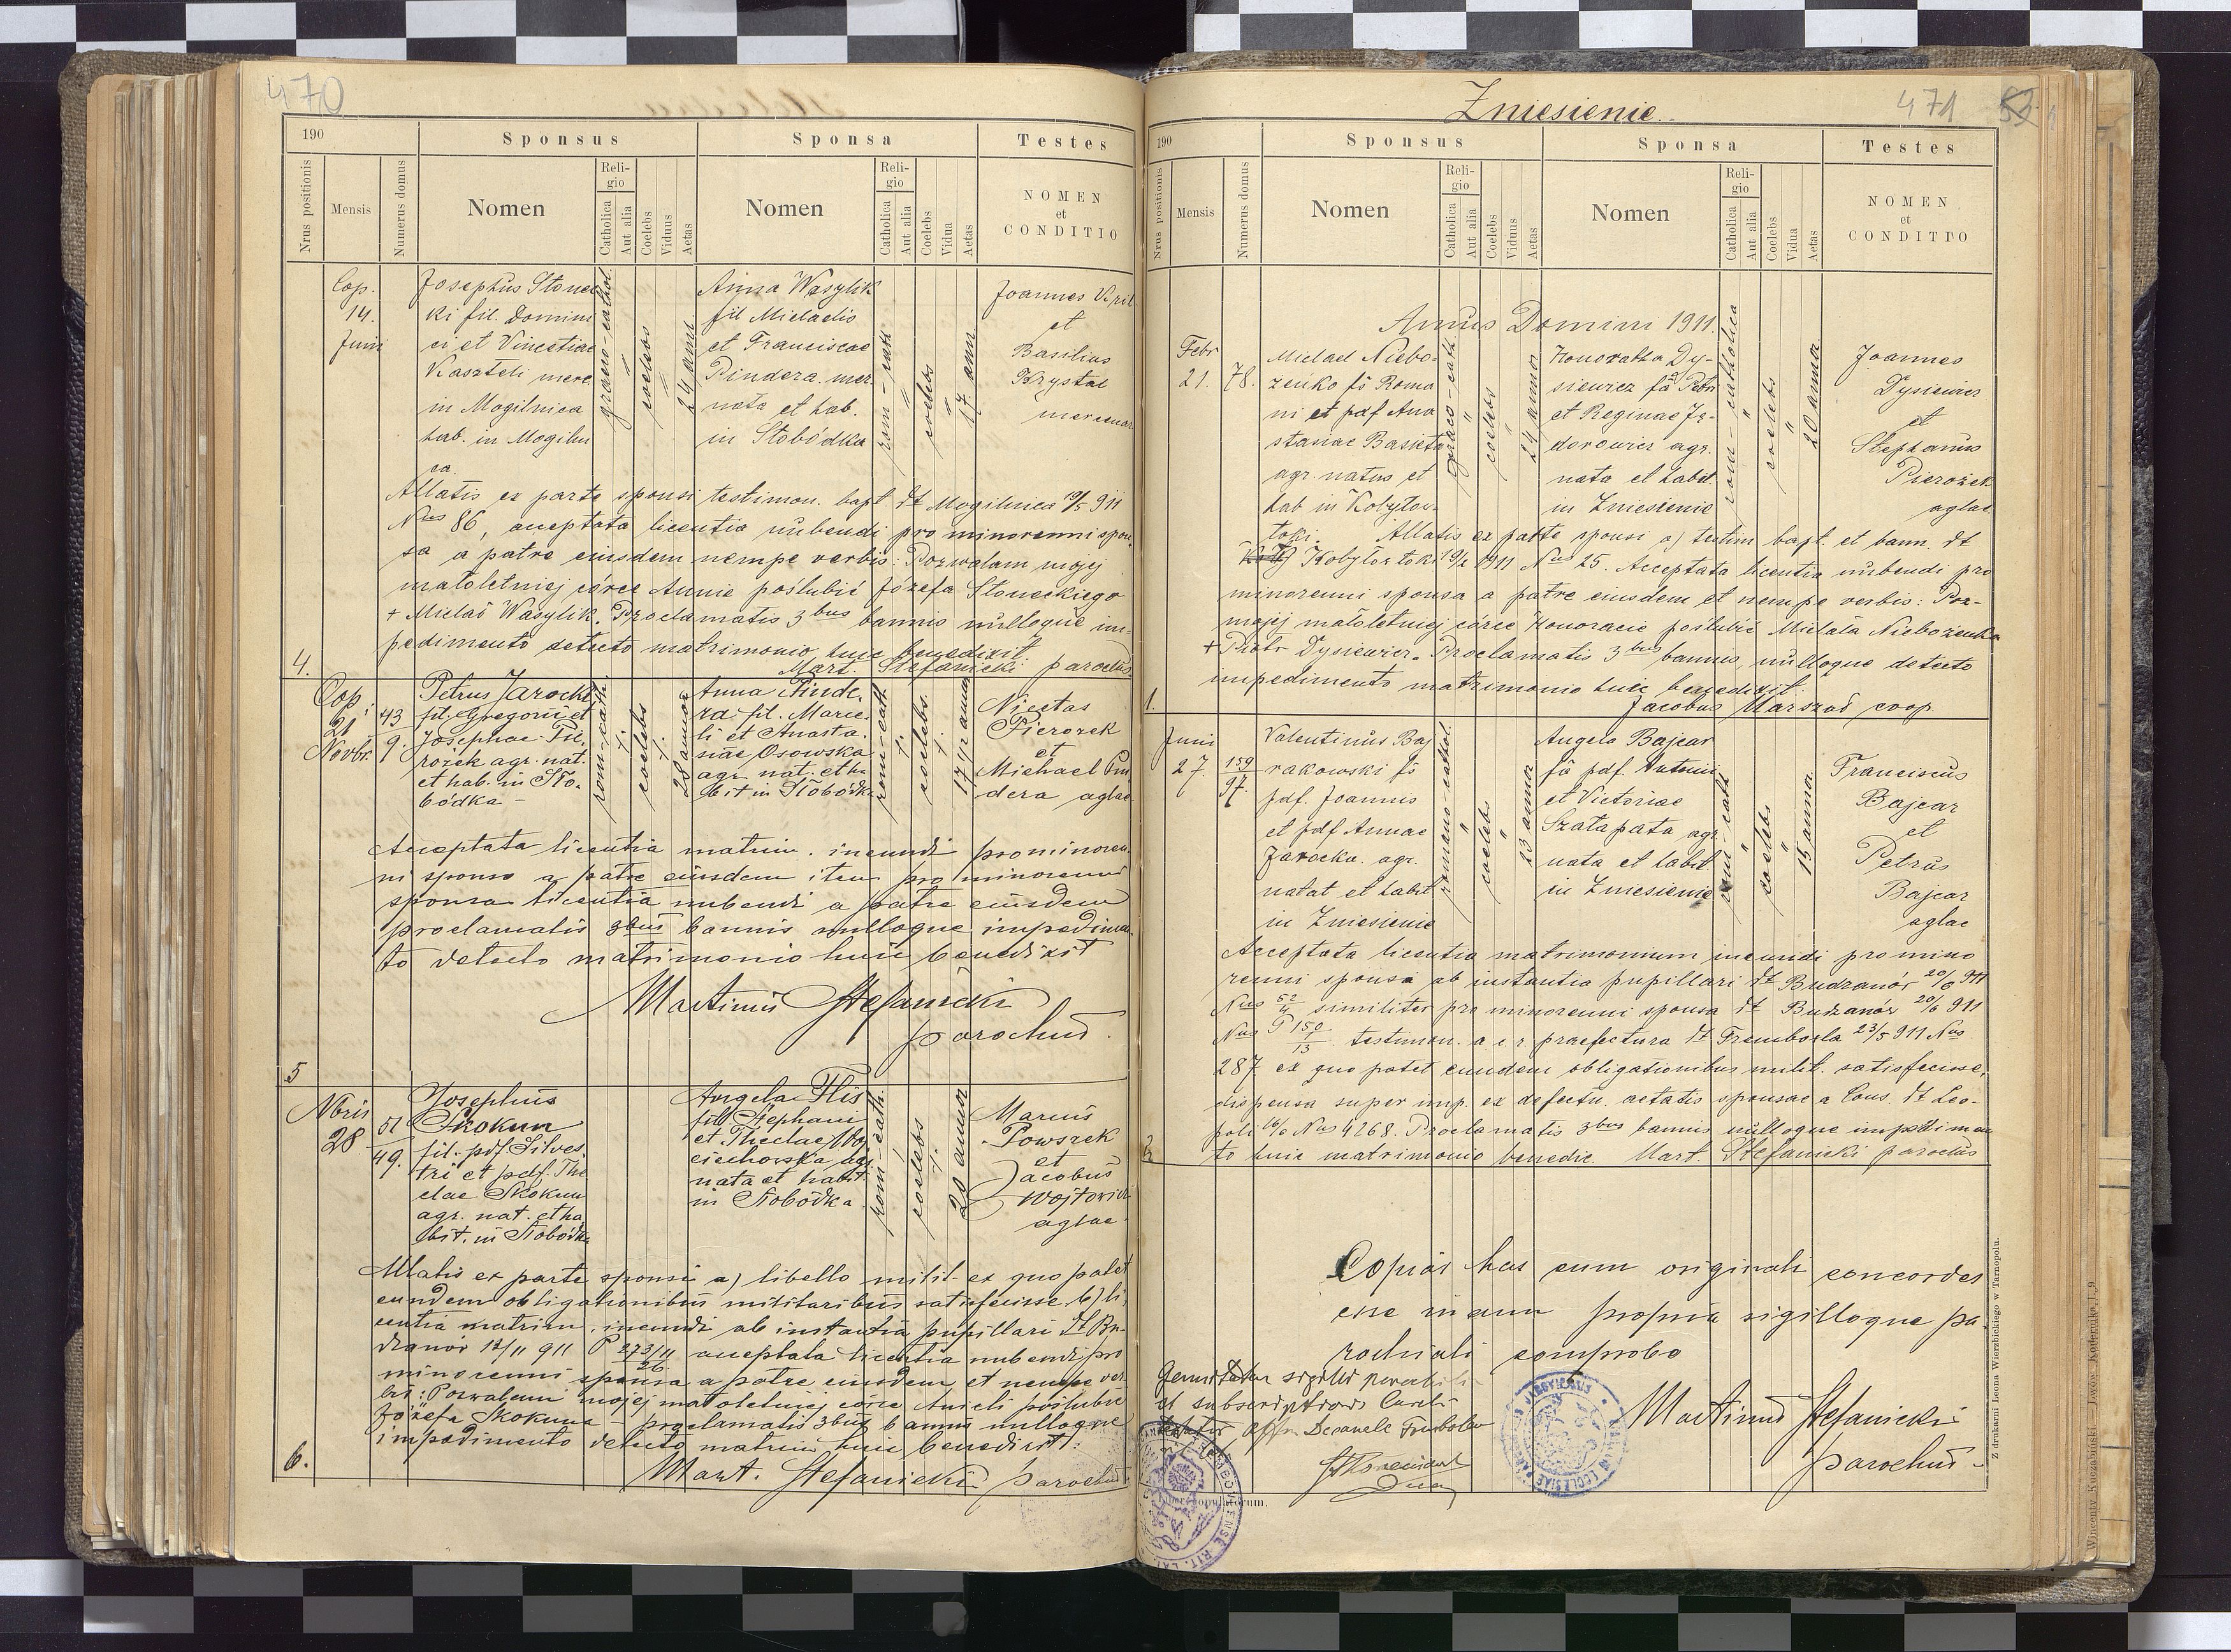 470
190
Sponsus
Sponsa
Testes
Nrus positionis
Mensis
Numerus domus
Nomen
Religio
Catholica
Aut alia
Coelebs
Viduus
Aetas
Nomen
Religio
Catholica
Aut alia
Coelebs
Vidua
Aetas
NOMEN
et
CONDITIO
4.
Cop.
14.
Junii
Josephus Słonec
ki fil. Domini
ci et Vincetiae
Kaszteli merc.
in Mogilnica
hab. in Mogilni
ca.
graeco-cathol.
coelebs
24 ann
Anna Wasylik
fil Michaelis
et Franciscae
Pindera. mer.
nata et hab.
in Słobódka
rom-cath
coelebs
17 ann
Joannes
et
Basilius
Krystal
mercenar
Allatis ex parte sponsi testimon. bapt dt Mogilnica 19/5 911
Nus 86, acceptata licentia nubendi pro minorenni spon
sa a patre eiusdem nempe verbis: Pozwalam mojej
małoletniej córce Annie poślubić Józefa Słoneckiego
+ Michał Wasylik. Proclamatis 3bus bannis nulloque im-
pedimento detecto matrimonio huic benedixit
Mart Stefanicki parochus
5
Cop.
21
Novbr.
43
9.
Petrus Jarocki
fil. Gregorii et
Josephae Pie-
rożek agr. nat.
et hab. in Sło-
bódka -
rom-cath.
coelebs
23 annor
Anna Pinde-
ra fil. Marce-
li et Anasta-
siae Osowska
agr nat. et ha
bit in Słobódka
rom-cath
coelebs.
17 1/2 annor
Nicetas
Pierozek
et
Michael Pin
dera aglae
Acceptata licentia matrim. ineundi pro minoren
ni sponso a patre eiusdem item pro minorenni
sponsa licentia nubendi a patre eiusdem
proclamatis 3bus bannis nulloque impedimen
to detecto matrimonio huic benedixit
Martinus Stefanicki
parochus.
6.
Nbris
28
51
49.
Josephus
Skokun
fil. pdf. Silves.
tri et pdf. The
clae Skokun
agr. nat. et ha
bit. in Słobódka
Angela Flis
fil. Stephani
et Theclae Woj
ciechowska agr
nata et habit
in Słobódka
rom-cath
coelebs
20 annor
Marcus
Powszek
et
Jacobus
Wojtowicz
aglae
Allatis ex parte sponsi a) libello milit. ex quo patet
eundem obligationibus militaribus satisfecisse. b) li-
centia matrim. ineundi ab instantia pupillari dt Bu-
dzanów 12/11 911 P 273/11/26 acceptata licentia nubendi pro
minorenni sponsa a patre eiusdem et nempe ver
bis: Pozwalam mojej małoletniej córce Anieli poślubić
Józefa Skokuna - proclamatis 3bus bannis nulloque
impedimento detecto matrim huic benedixit:
Mart. Stefanicki parochus
Zniesienie.
471
52
190
Sponsus
Sponsa
Testes
Nrus positionis
Mensis
Numerus domus
Nomen
Religio
Catholica
Aut alia
Coelebs
Viduus
Aetas
Nomen
Religio
Catholica
Aut alia
Coelebs
Vidua
Aetas
NOMEN
et
CONDITIO
Annus Domini 1911.
1.
Febr
21.
78.
Michael Niebo-
żenko fs Roma
ni et pdf Ana
stasiae Basista
agr. natus et
hab in Kobyłow
łoki.
graeco-cath.
coelebs
24 annor
Honoratha Dy-
siewicz fa Petri
et Reginae Ję-
dorowicz agr.
nata et habit.
in Zniesienie
rom-catholica
coelebs
20 annor
Joannes
Dysiewicz
et
Stephanus
Pierożek
aglae
Allatis ex parte sponsi a) testim bapt. et bann. dt
Kobyłowłoki 19/2 1911 Nus 25. Acceptata licentia nubendi pro
minorenni sponsa a patre eiusdem et nempe verbis: Poz-
mojej małoletniej córce Honoracie poślubić Michała Niebożenka
+ Piotr Dysiewicz. Proclamatis 3bus bannis, nulloque detecto
impedimento matrimonio huic benedixit.
Jacobus Marszał coop.
2
Junii
27.
159
97.
Valentinus Baj
rakowski fs
pdf. Joannis
et pdf Annae
Jarocka. agr.
natat et habit
in Zniesienie
romano cathol.
coelebs
23 annor
Angela Bajcar
fa pdf. Antonii
et Victoriae
Szatapata agr.
nata et habit
in Zniesienie
rom-cath
coelebs
15 annor.
Franciscus
Bajcar
et
Petrus
Bajcar
aglae
Acceptata licentia matrimonium ineundi pro mino
renni sponso ab instantia pupillari dt Budzanów 20/6 911
Nus 52/4 similiter pro minorenni sponsa dt Budzanów 20/6 911
Nus P 150/13 testimon. a c r. praefectura dt Trembowla 23/5 911 Nus
287 ex quo patet eundem obligationibus milit. satisfecisse,
dispensa super imp. ex defectu aetatis sponsae a Cons. dt Leo-
poli 16/6 Nus 4268. Proclamatis 3bus bannis nulloque impedimen
to huic matrimonio benedic. Mart. Stefanicki parochus
Copias has cum originali concordes
esse manu propria sigilloque pa-
rochiali comprobo
Martinus Stefanicki
parochus
Z drukarni Leona Wierzbickiego w Tarnopolu.